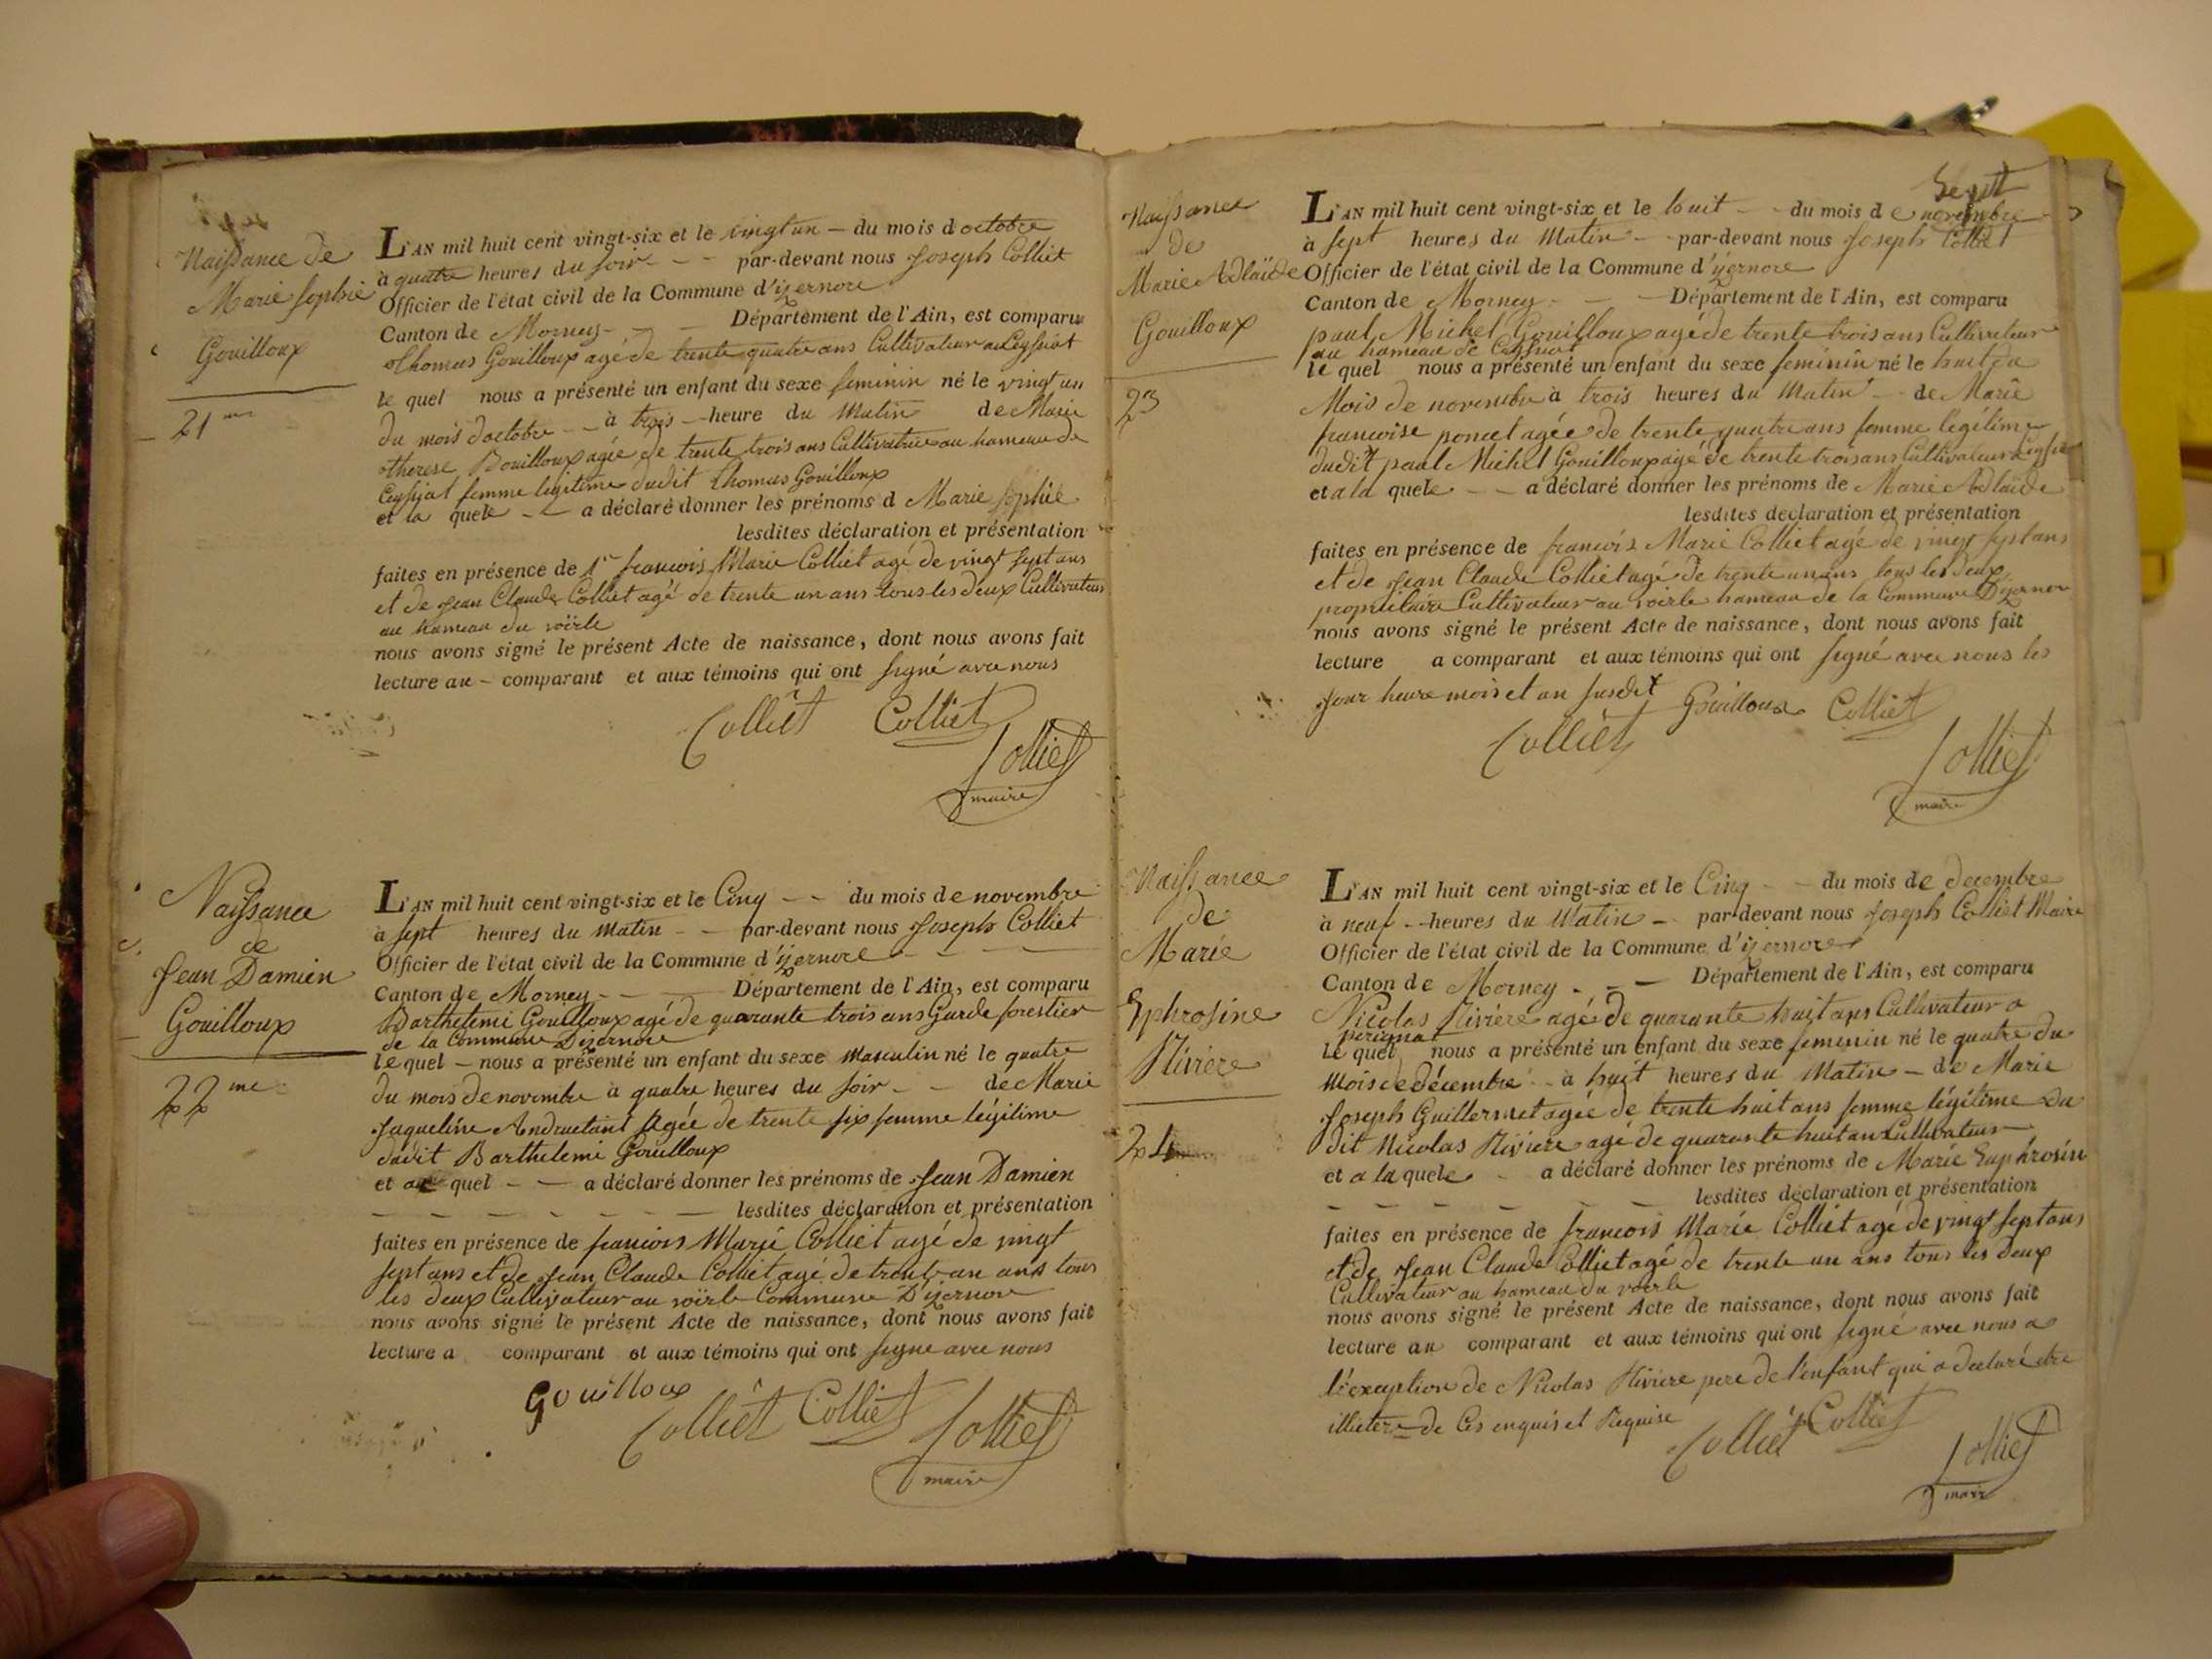 Naissance de
Marie Sophie
Gouilloux
21me
L'AN mil huit cent vingt-six et le vingt un — du mois d octobre
à quatre heures du soir - - - par-devant nous Joseph Colliet
Officier de l'état civil de la Commune d'izernore
Canton de Mornay - - Département de l'Ain, est comparu
thomas Gouilloux agé de trente quatre ans Cultivateur au Ceyssiat
le quel nous a présenté un enfant du sexe feminin né le vingt un
du mois doctobre - - à trois - heure du matin de Marie
therese Bouilloux agée de trente trois ans Cultivatrice au hameau de
Ceyssiat femme legitime dudit thomas Gouilloux
et la quele - - a déclaré donner les prénoms d Marie sophie
lesdites déclaration et présentation
faites en présence de 1er francois Marie Colliet agé de vingt sept ans
et de Jean Claude Colliet agé de trente un ans tous les deux Cultivateur
au hameau du voërle
nous avons signé le présent Acte de naissance, dont nous avons fait
lecture au - comparant et aux témoins qui ont signé avec nous
Colliet Colliet
Colliet
maire
Nayssance
de
Jean Damien
Gouilloux
22me
L'AN mil huit cent vingt-six et le Cinq - - du mois de novembre
à sept heures du matin - - par-devant nous Joseph Colliet
Officier de l'état civil de la Commune d'izernore - - -
Canton de Mornay - - Département de l'Ain, est comparu
Barthelemi Gouilloux agé de quarante trois ans Garde forestier
de la Commune Dizernore
lequel - nous a présenté un enfant du sexe masculin né le quatre
du mois de novembre à quatre heures du soir - - de Marie
Jaqueline Agée de trente six femme légitime
dudit Barthelemi Gouilloux
et quel - - a déclaré donner les prénoms de Jean Damien
- - - - - - lesdites déclaration et présentation
faites en présence de francois Marie Colliet agé de vingt
sept ans et de Jean Claude Colliet agé de trente un ans tous
les deux Cultivateur au voërle Commune D'izernore
nous avons signé le présent Acte de naissance, dont nous avons fait
lecture a comparant et aux témoins qui ont signe avec nous
Gouilloux
Colliet Colliet Colliet
maire
sept
Naissance
de
Marie Adlaïde
Gouilloux
23
L'AN mil huit cent vingt-six et le huit - - du mois de novembre
à sept heures du matin - - par-devant nous Joseph Colliet
Officier de l'état civil de la Commune d'izernore
Canton de Mornay - - - Département de l'Ain, est comparu
paul Michel Gouilloux agé de trente trois ans Cultivateur
au hameau de Ceyssiat
le quel nous a présenté un enfant du sexe feminin né le huit du
Mois de novembre à trois heures du matin - - de Marie
francoise poncet agée de trente quatre ans femme légitime
dudit paul Michel Gouilloux agé de trente trois ans Cultivateur
et a la quele - - a déclaré donner les prénoms de Marie Adlaïde
lesdites declaration et présentation
faites en présence de francois Marie Colliet agé de vingt sept ans
et de Jean Claude Colliet agé de trente un ans tous les deux
propriétaire Cultivateur au voërle hameau de la Commune D'izernore
nous avons signé le présent Acte de naissance, dont nous avons fait
lecture a comparant et aux témoins qui ont signé avec nous les
Jour heure mois et an susdit Gouilloux Colliet
Colliet
Colliet
maire
Naissance
de
Marie
Ephrosine
Riviere
24
L'AN mil huit cent vingt-six et le Cinq - - du mois de decembre
à neuf - heures du matin - par-devant nous Joseph Colliet Maire
Officier de l'état civil de la Commune d'izernore
Canton de Mornay - - - Département de l'Ain, est comparu
Nicolas Riviere agé de quarante huit ans Cultivateur a
perignat
le quel nous a présenté un enfant du sexe feminin né le quatre du
mois de décembre - à huit heures du matin - de Marie
Joseph Guillermet agée de trente huit ans femme légitime du
dit Nicolas Riviere agé de quarante huit an Cultivateur
et a la quele - a déclaré donner les prénoms de Marie Euphrosin
- - - - - - lesdites déclaration et présentation
faites en présence de francois Marie Colliet agé de vingt sept ans
et de Jean Claude Colliet agé de trente un ans tous les deux
Cultivateur au hameau du voërle
nous avons signé le présent Acte de naissance, dont nous avons fait
lecture au comparant et aux témoins qui ont signé avec nous a
l'exception de Nicolas Riviere pere de l'enfant qui a declaré etre
de Ces enquis et Requise
Colliet Colliet
Colliet
maire